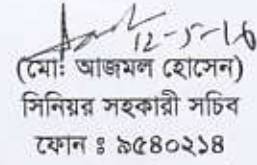 12-5-16
(মোঃ আজমল হোসেন)
সিনিয়র সহকারী সচিব
ফোন ঃ ৯৫৪০২১৪